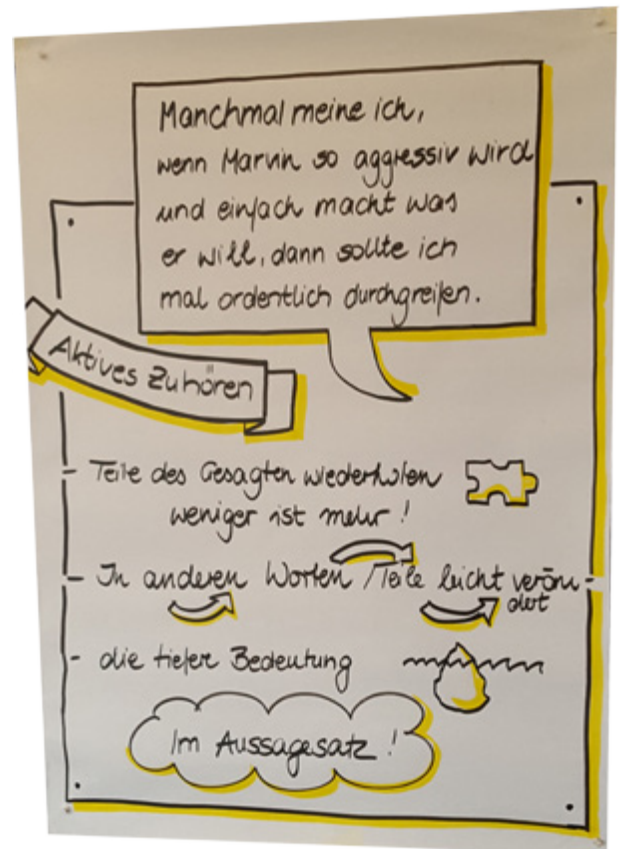 Manchmal meine ich,
wenn Marvin so aggressiv wird
und einfach macht was
er will, dann sollte ich
mal ordentlich durchgreifen.
Aktives Zuhören
- Teile des Gesagten wiederholen
weniger ist mehr!
- In anderen Worten / Teile leicht verän-
dert
- die tiefere Bedeutung
Im Aussagesatz!